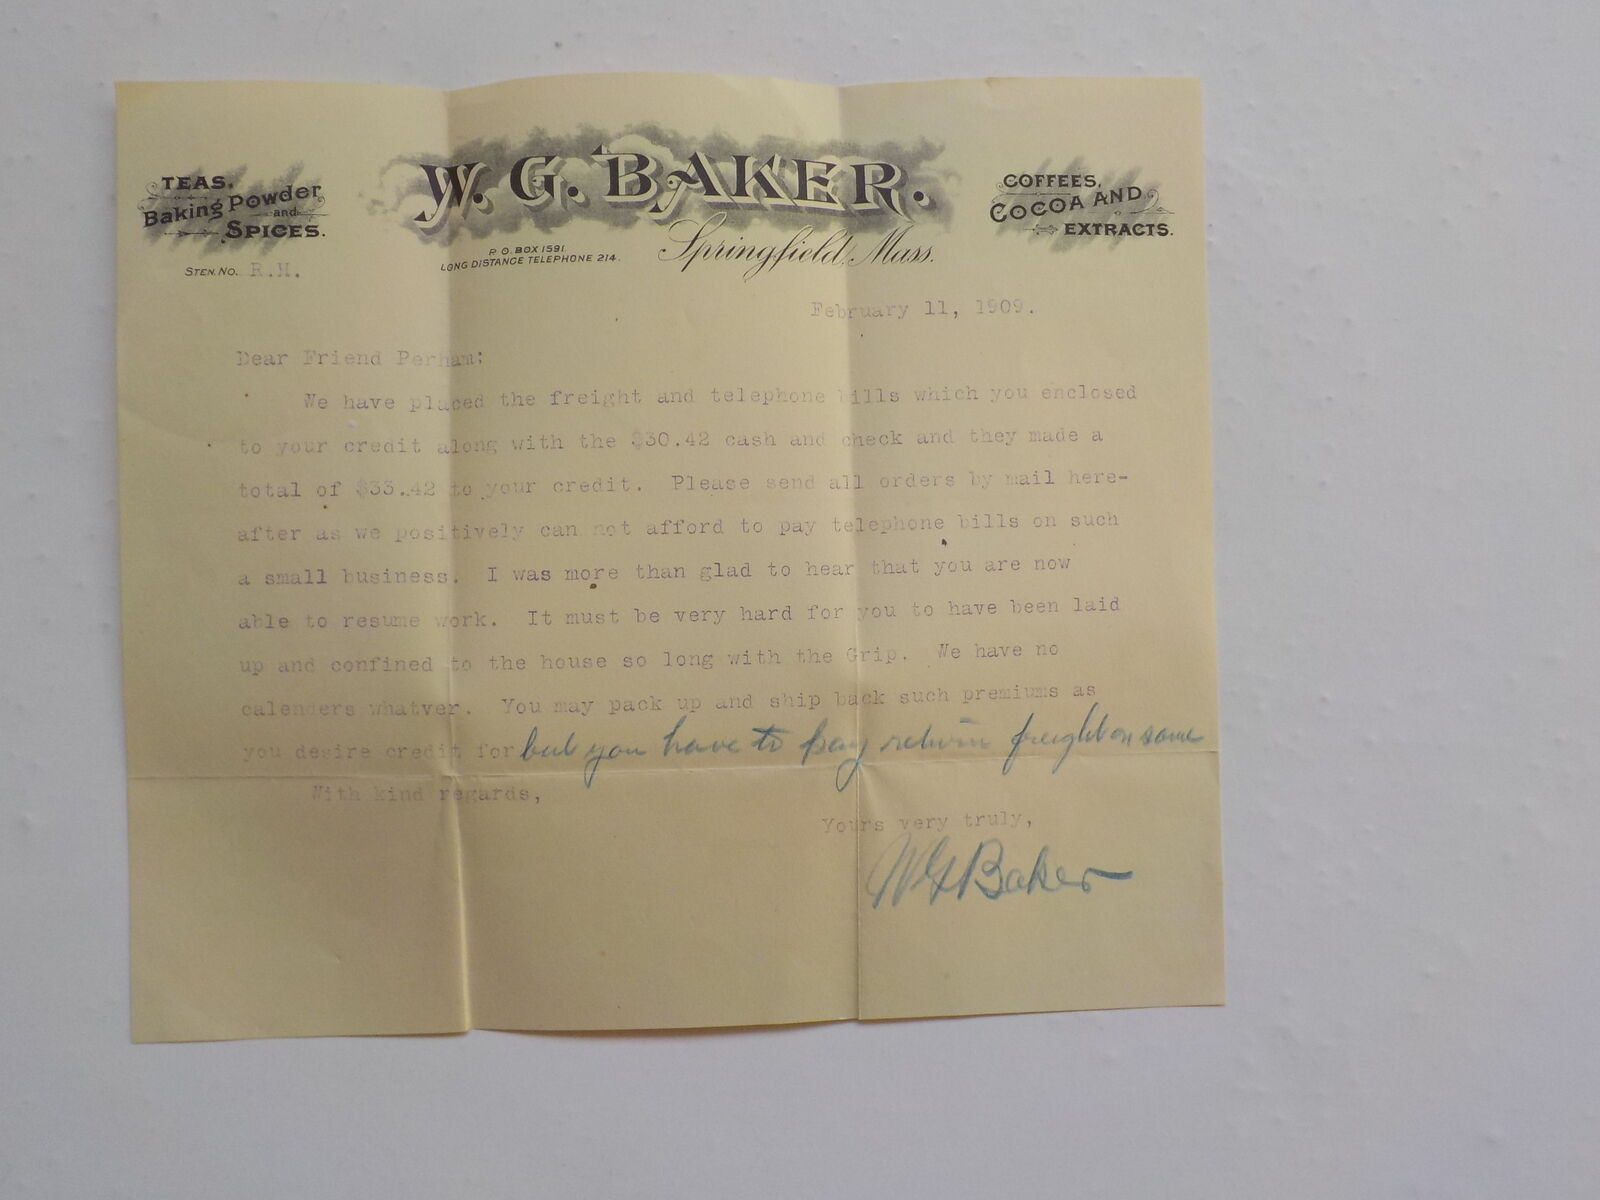 TEAS,
Baking Powder
and
SPICES.
W. G. BAKER.
COFFEES,
COCOA AND
EXTRACTS.
P. O. BOX 1591
LONG DISTANCE TELEPHONE 214.
Springfield, Mass.
STEN. NO. R.H.
February 11, 1909.
Dear Friend Perham:
We have placed the freight and telephone bills which you enclosed
to your credit along with the $30.42 cash and check and they made a
total of $33.42 to your credit. Please send all orders by mail here-
after as we positively can not afford to pay telephone bills on such
a small business. I was more than glad to hear that you are now
able to resume work. It must be very hard for you to have been laid
up and confined to the house so long with the Grip. We have no
calenders whatver. You may pack up and ship back such premiums as
you desire credit for but you have to pay return freight on same
With kind regards,
Yours very truly,
WG Baker